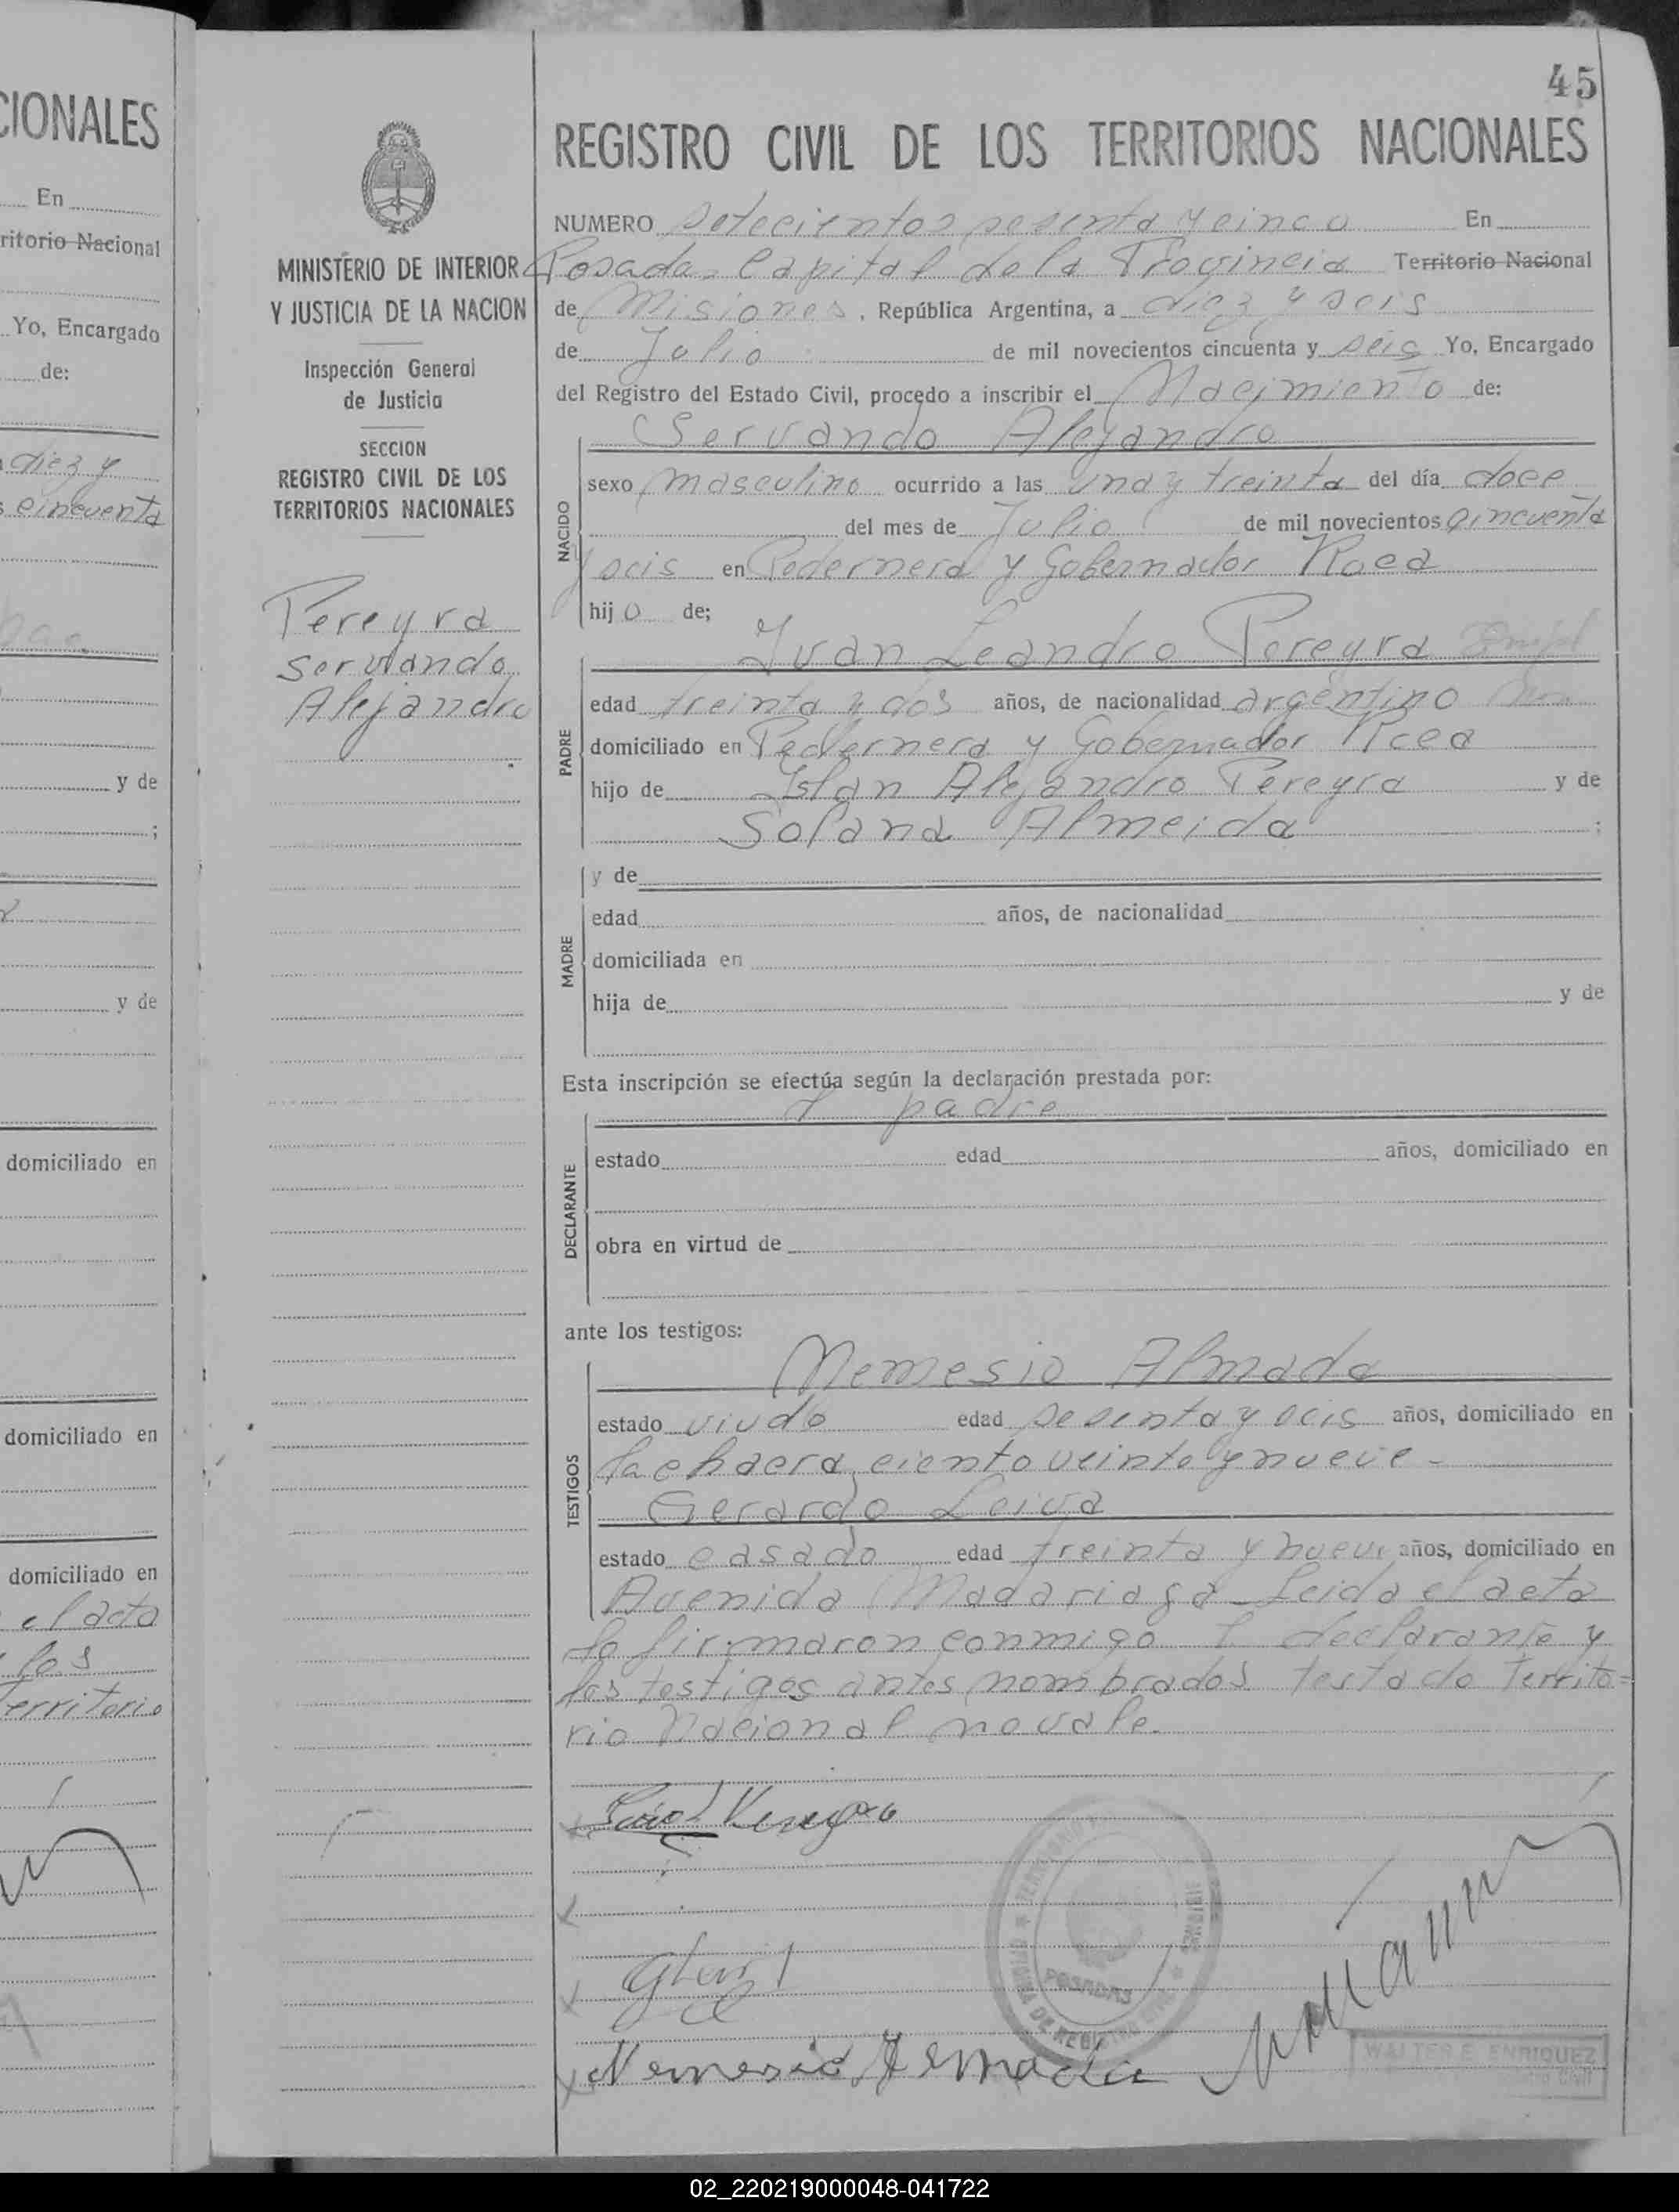 CIONALES
En
ritorio Nacional
Yo, Encargado
de:
diez y
cincuenta
y de
;
y de
domiciliado en
domiciliado en
domiciliado en
el acta
los
erritorio
MINISTERIO DE INTERIOR
Y JUSTICIA DE LA NACION
Inspección General
de Justicia
SECCION
REGISTRO CIVIL DE LOS
TERRITORIOS NACIONALES
Pereyra
Servando
Alejandro
45
REGISTRO CIVIL DE LOS TERRITORIOS NACIONALES
NUMERO Setecientos sesenta y cinco En
Posadas Capital de la Provincia Territorio Nacional
de Misiones, República Argentina, a diez y seis
de Julio de mil novecientos cincuenta y seis Yo, Encargado
del Registro del Estado Civil, procedo a inscribir el Nacimiento de:
Servando Alejandro
NACIDO
sexo masculino ocurrido a las una y treinta del día doce
del mes de Julio de mil novecientos cincuenta
y seis en Pedernera y Gobernador Roca
hijo de;
Juan Leandro Pereyra
PADRE
edad treinta y dos años, de nacionalidad argentino
domiciliado en Pedernera y Gobernador Roca
hijo de Alejandro Pereyra y de
Solana Almeida ;
y de
MADRE
edad años, de nacionalidad
domiciliada en
hija de y de
Esta inscripción se efectúa según la declaración prestada por:
l padre
DECLARANTE
estado edad años, domiciliado en
obra en virtud de
ante los testigos:
Nemesio Almada
TESTIGOS
estado viudo edad sesenta y seis años, domiciliado en
la chacra ciento veinte y nueve -
Gerardo Leiva
estado casado edad treinta y nueve años, domiciliado en
Avenida Madariaga - Leida el acta
la firmaron conmigo l declarante y
los testigos antes nombrados testado Territo=
rio Nacional no vale.
POSADAS
MISIONES
Nemesio Almada
WALTER E. ENRIQUEZ
02_220219000048-041722